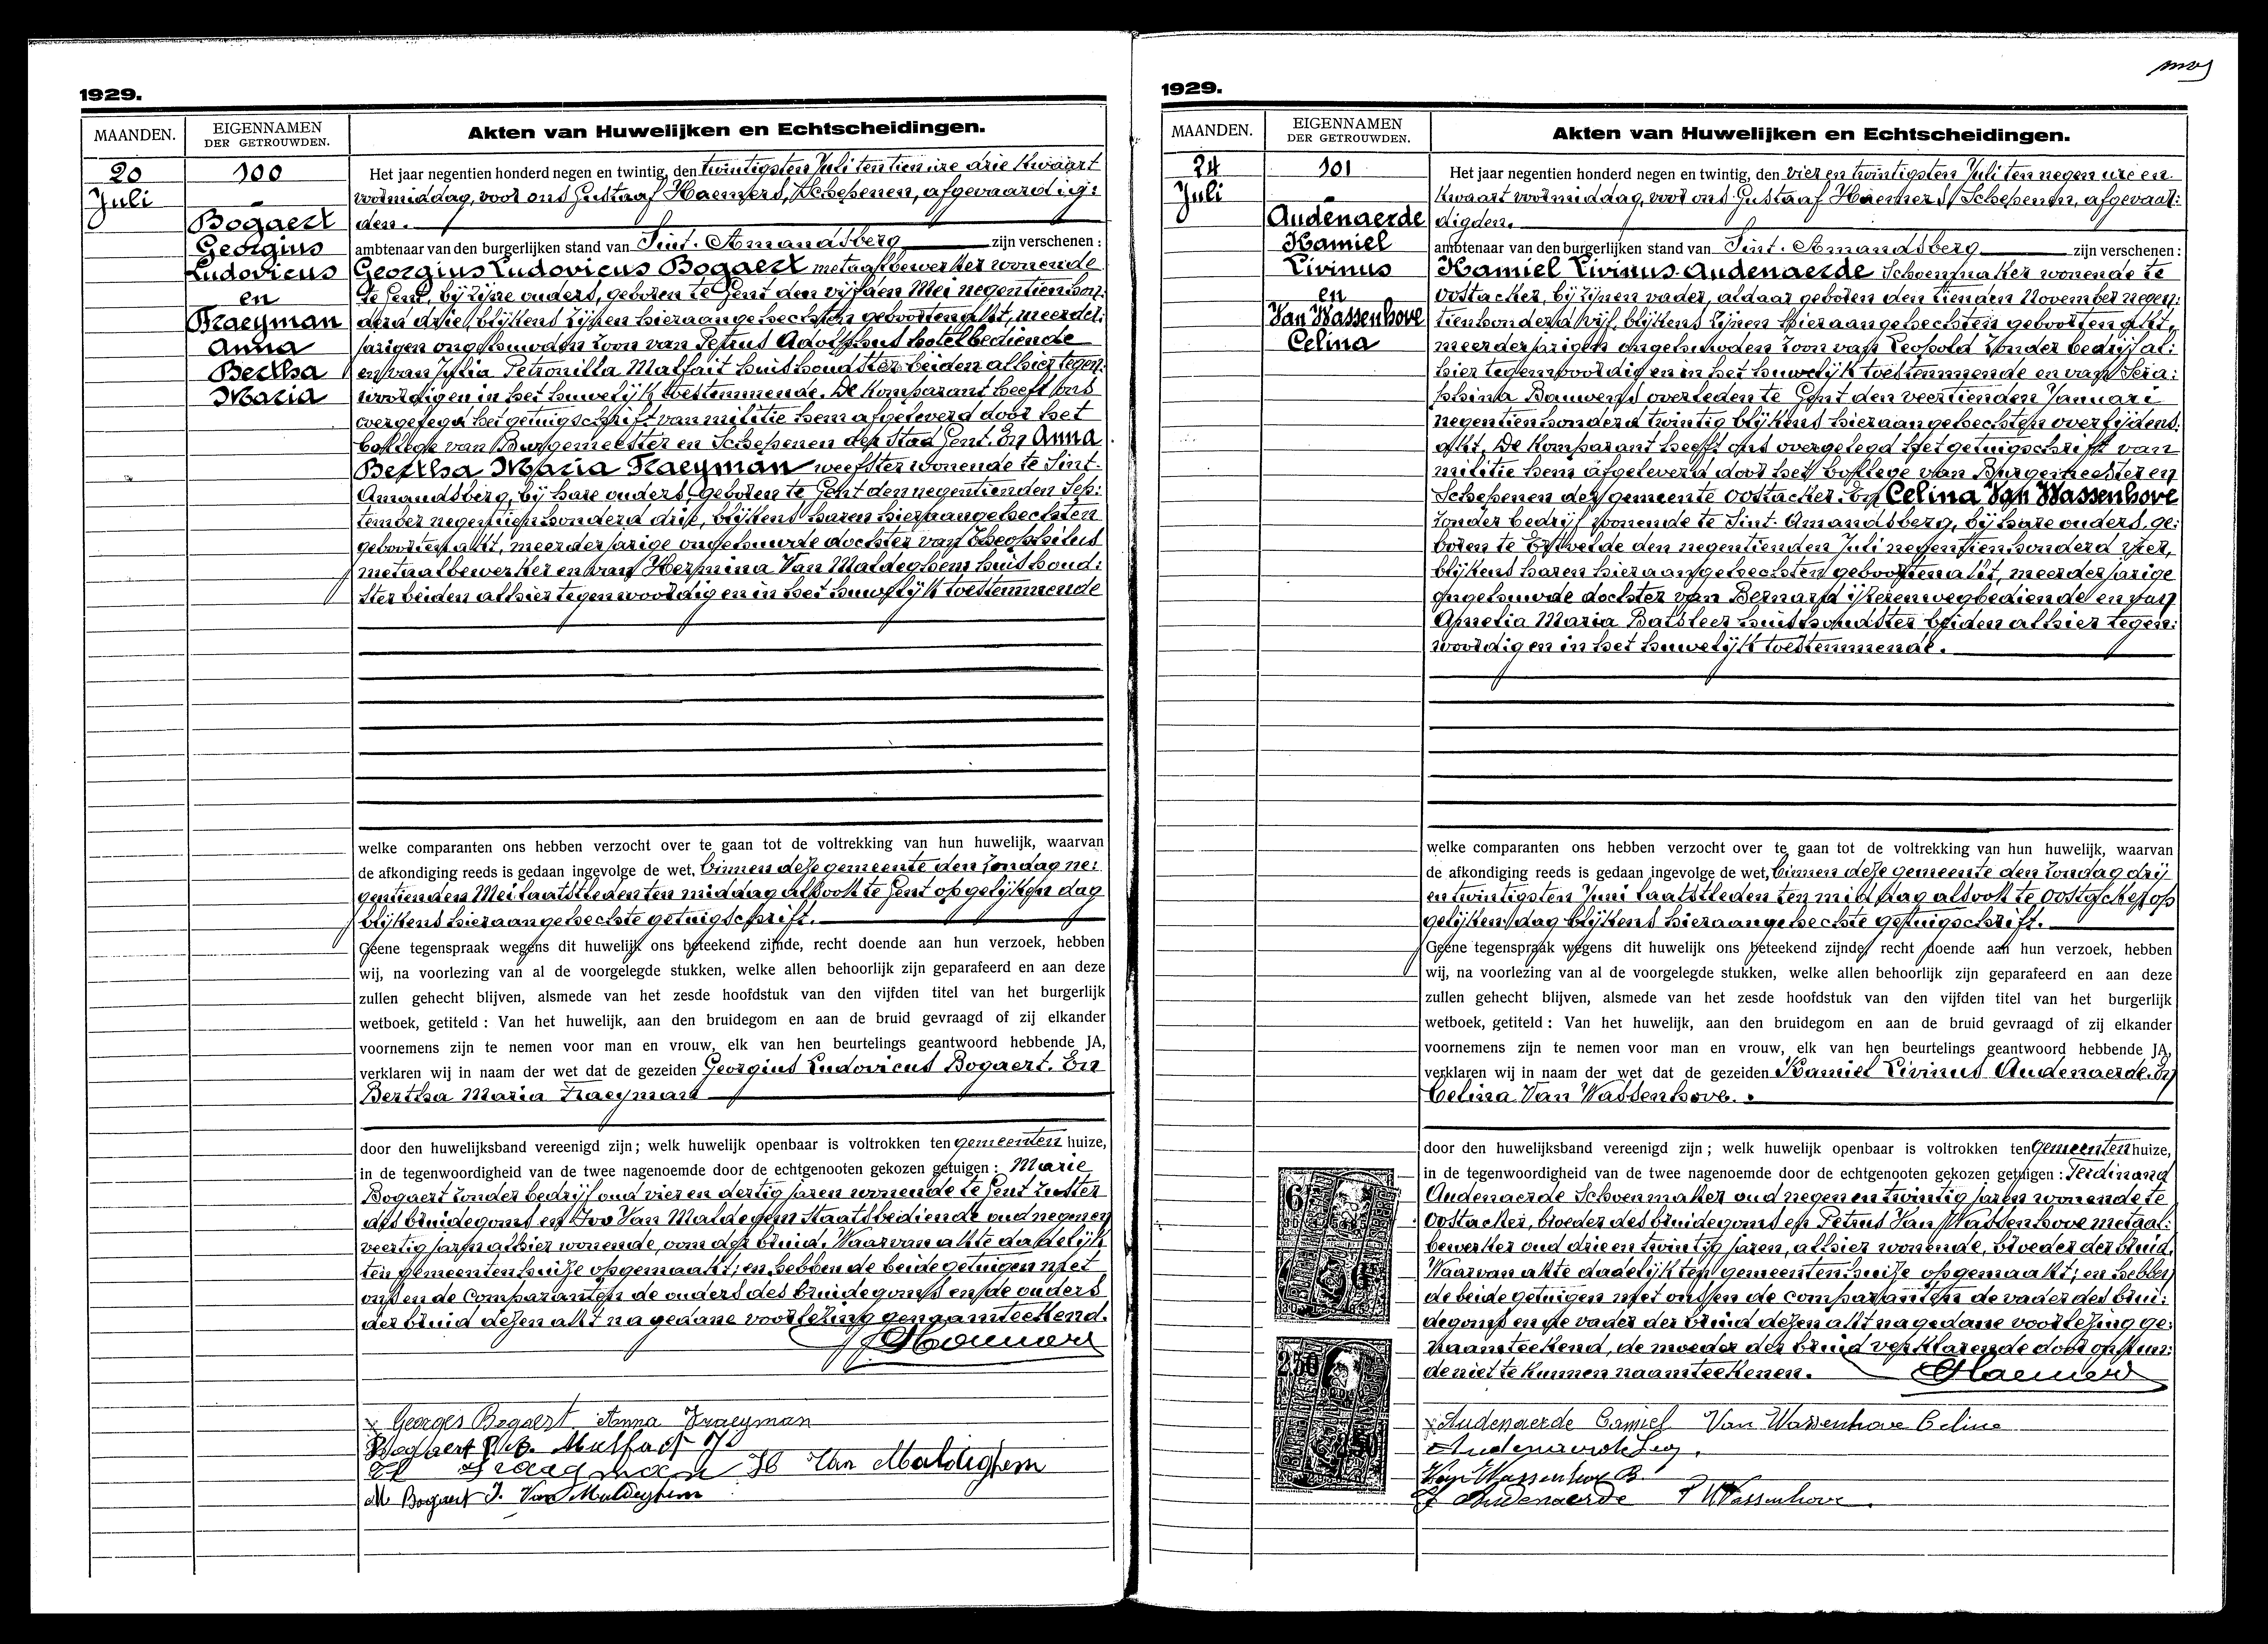 1929.
MAANDEN.
EIGENNAMEN
DER GETROUWDEN.
Akten van Huwelijken en Echtscheidingen.
20
Juli
100
Bogaert
Georgius
Ludovicus
en
Traeyman
Anna
Bertha
Maria
Het jaar negentien honderd negen en twintig, den twintigsten Juli ten tien ure drie kwaart
voormiddag, voor ons Gustaaf Haemers, Schepenen, afgevaardig:
den.
ambtenaar van den burgerlijken stand van Sint-Amandsberg zijn verschenen :
Georgius Ludovicus Bogaert metaalbewerker wonende
te Gent, bij zijne ouders, geboren te Gent den vijfden Mei negentienhon:
derd drie, blijkens zijnen hieraangehechten geboortenakt, meerder:
jarigen ongehuwden zoon van Petrus Adolphus hotelbediende
en van Julia Petronilla Malfait huishoudster beiden alhier tegen:
woordig en in het huwelijk toestemmende. De komparant heeft ons
overgelegd het getuigschrift van militie hem afgeleverd door het
kollege van Burgemeester en Schepenen der Stad Gent. En Anna
Bertha Maria Traeyman weefster wonende te Sint-
Amandsberg, bij hare ouders, geboren te Gent den negentienden Sep:
tember negentienhonderd drie, blijkens haren hieraangehechten
geboortenakt, meerderjarige ongehuwde dochter van Theophilus
metaalbewerker en van Hermina Van Maldeghem huishoud:
ster beiden alhier tegenwoordig en in het huwelijk toestemmende
welke comparanten ons hebben verzocht over te gaan tot de voltrekking van hun huwelijk, waarvan
de afkondiging reeds is gedaan ingevolge de wet, binnen deze gemeente den zondag ne:
gentienden Mei laatstleden ten middag alsook te Gent op gelijken dag
blijkens hieraangehechte getuigschrift.
Geene tegenspraak wegens dit huwelijk ons beteekend zijnde, recht doende aan hun verzoek, hebben
wij, na voorlezing van al de voorgelegde stukken, welke allen behoorlijk zijn geparafeerd en aan deze
zullen gehecht blijven, alsmede van het zesde hoofdstuk van den vijfden titel van het burgerlijk
wetboek, getiteld : Van het huwelijk, aan den bruidegom en aan de bruid gevraagd of zij elkander
voornemens zijn te nemen voor man en vrouw, elk van hen beurtelings geantwoord hebbende JA,
verklaren wij in naam der wet dat de gezeiden Georgius Ludovicus Bogaert. En
Bertha Maria Traeyman
door den huwelijksband vereenigd zijn ; welk huwelijk openbaar is voltrokken ten gemeenten huize,
in de tegenwoordigheid van de twee nagenoemde door de echtgenooten gekozen getuigen : Marie
Bogaert zonder bedrijf oud vier en dertig jaren wonende te Gent zuster
des bruidegoms en Ivo Van Maldegem Staatsbediende oud negen en
veertig jaren alhier wonende, oom der bruid. Waarvan akte dadelijk
ten gemeentenhuize opgemaakt; en hebben de beide getuigen met
ons en de Comparanten de ouders des bruidegoms en de ouders
der bruid dezen akt na gedane voorlezing genaamteekend.
GHaemers
x Georges Bogaert Anna Traeyman
Bogaert P.A. Malfait J
Traeyman H Van Maldeghem
M Bogaert I. Van Maldeghem
1929.
MAANDEN.
EIGENNAMEN
DER GETROUWDEN.
Akten van Huwelijken en Echtscheidingen.
24
Juli
101
Audenaerde
Kamiel
Livinus
en
Van Wassenhove
Celina
Het jaar negentien honderd negen en twintig, den vier en twintigsten Juli ten negen ure en
kwaart voormiddag, voor ons Gustaaf Haemers, Schepenen, afgevaar:
digden.
ambtenaar van den burgerlijken stand van Sint-Amandsberg zijn verschenen :
Kamiel Livinus Audenaerde Schoenmaker wonende te
Oostacker, bij zijnen vader, aldaar geboren den tienden November negen:
tienhonderd vijf, blijkens zijnen hieraangehechten geboorten akt,
meerderjarigen ongehuwden zoon van Leopold zonder bedrijf al:
hier tegenwoordig en in het huwelijk toestemmende en van Sera:
phina Bauwens overleden te Gent den veertienden Januari
negentienhonderd twintig blijkens hieraangehechten overlijdens:
akt. De komparant heeft ons overgelegd het getuigschrift van
militie hem afgeleverd door het kollege van Burgemeester en
Schepenen der gemeente Oostacker. En Celina Van Wassenhove
zonder bedrijf wonende te Sint-Amandsberg, bij hare ouders, ge:
boren te Ertvelde den negentienden Juli negentienhonderd vier,
blijkens haren hieraangehechten geboortenakt, meerderjarige
ongehuwde dochter van Bernard ijzerenwegbediende en van
Amelia Maria Batsleer huishoudster beiden alhier tegen:
woordig en in het huwelijk toestemmende.
welke comparanten ons hebben verzocht over te gaan tot de voltrekking van hun huwelijk, waarvan
de afkondiging reeds is gedaan ingevolge de wet, binnen deze gemeente den zondag drij
en twintigsten Juni laatstleden ten middag alsook te Oostacker op
gelijken dag blijkens hieraangehechte getuigschrift.
Geene tegenspraak wegens dit huwelijk ons beteekend zijnde, recht doende aan hun verzoek, hebben
wij, na voorlezing van al de voorgelegde stukken, welke allen behoorlijk zijn geparafeerd en aan deze
zullen gehecht blijven, alsmede van het zesde hoofdstuk van den vijfden titel van het burgerlijk
wetboek, getiteld : Van het huwelijk, aan den bruidegom en aan de bruid gevraagd of zij elkander
voornemens zijn te nemen voor man en vrouw, elk van hen beurtelings geantwoord hebbende JA,
verklaren wij in naam der wet dat de gezeiden Kamiel Livinus Audenaerde. En
Celina Van Wassenhove.
door den huwelijksband vereenigd zijn ; welk huwelijk openbaar is voltrokken ten Gemeenten huize,
in de tegenwoordigheid van de twee nagenoemde door de echtgenooten gekozen getuigen : Ferdinand
Audenaerde Schoenmaker oud negen en twintig jaren wonende te
Oostacker, broeder des bruidegoms en Petrus Van Wassenhove metaal:
bewerker oud drie en twintig jaren, alhier wonende, broeder der bruid.
Waarvan akte dadelijk ten gemeentenhuize opgemaakt; en hebben
de beide getuigen met ons en de comparanten de vader des brui:
degoms en de vader der bruid dezen akt na gedane voorlezing ge:
naamteekend, de moeder der bruid verklarende door onkun:
de niet te kunnen naamteekenen.
GHaemers
x Audenaerde Camiel Van Wassenhove Celine
Audenaerde Leo.
Van Wassenhove B.
F Audenaerde P V Wassenhove